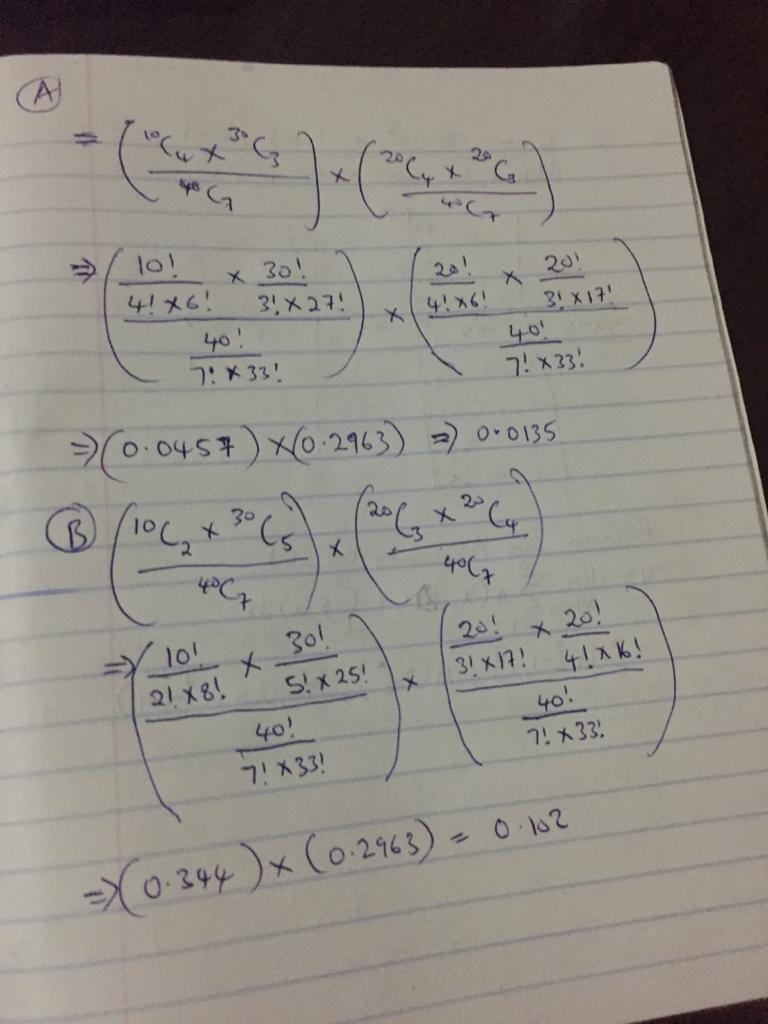 A
= (¹⁰C₄ × ³⁰C₃ / ⁴⁰C₇) × (²⁰C₄ × ²⁰C₃ / ⁴⁰C₇)
⇒ (10!/(4! × 6!) × 30!/(3! × 27!) / 40!/(7! × 33!)) × (20!/(4! × 6!) × 20!/(3! × 17!) / 40!/(7! × 33!))
⇒ (0.0457) × (0.2963) ⇒ 0.0135
B (¹⁰C₂ × ³⁰C₅ / ⁴⁰C₇) × (²⁰C₃ × ²⁰C₄ / ⁴⁰C₇)
⇒ (10!/(2! × 8!) × 30!/(5! × 25!) / 40!/(7! × 33!)) × (20!/(3! × 17!) × 20!/(4! × 16!) / 40!/(7! × 33!))
⇒ (0.344) × (0.2963) = 0.102